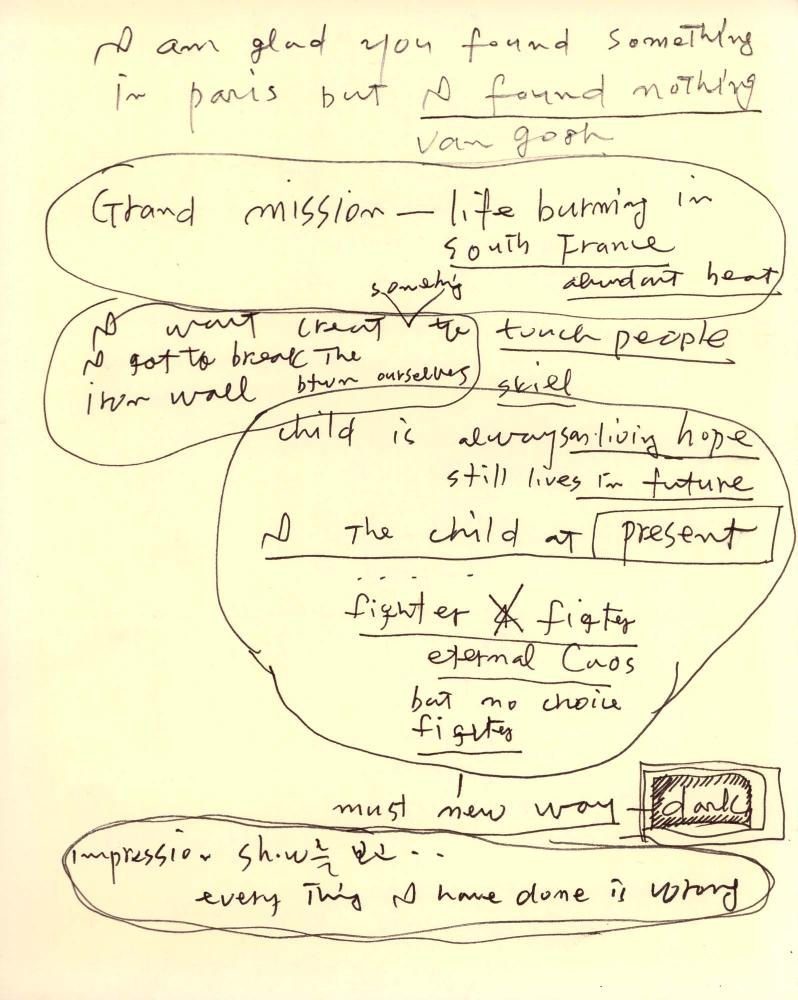 I am glad you found something
in paris but I found nothing
van gosh
Grand mission — life burning in
south France
abundant heat
somethig
I want creat to touch people
I got to break The
iron wall btwn ourselves
skill
child is always an living hope
still lives in future
I The child at present
fighter figter
eternal Caos
but no choice
figter
must new way - dark
impression show를 보고..
every Thing I have done is wrong